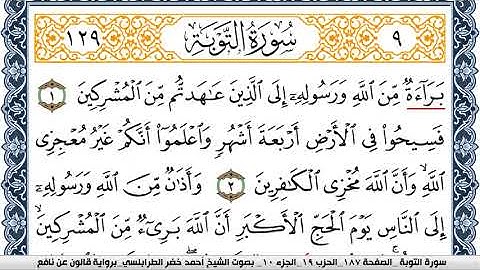 ٩ سُورَةُ التَّوْبَةِ ١٢٩
بَرَآءَةٌ مِّنَ اَ۬للَّهِ وَرَسُولِهِۦٓ إِلَى اَ۬لذِينَ عَٰهَدتُّم مِّنَ اَ۬لْمُشْرِكِينَ ١
فَسِيحُواْ فِے اِ۬لْأَرْضِ أَرْبَعَةَ أَشْهُرٖ وَاعْلَمُوٓاْ أَنَّكُمْ غَيْرُ مُعْجِزِے
اِ۬للَّهِ وَأَنَّ اَ۬للَّهَ مُخْزِے اِ۬لْكَٰفِرِينَ ٢ وَأَذَٰنٌ مِّنَ اَ۬للَّهِ وَرَسُولِهِۦٓ
إِلَى اَ۬لنَّاسِ يَوْمَ اَ۬لْحَجِّ اِ۬لْأَكْبَرِ أَنَّ اَ۬للَّهَ بَرِےٓءٌ مِّنَ اَ۬لْمُشْرِكِينَ
سورة التوبة_ الصفحة ١٨٧_ الحزب ١٩_ الجزء ١٠_ بصوت الشيخ أحمد خضر الطرابلسي_ برواية قالون عن نافع